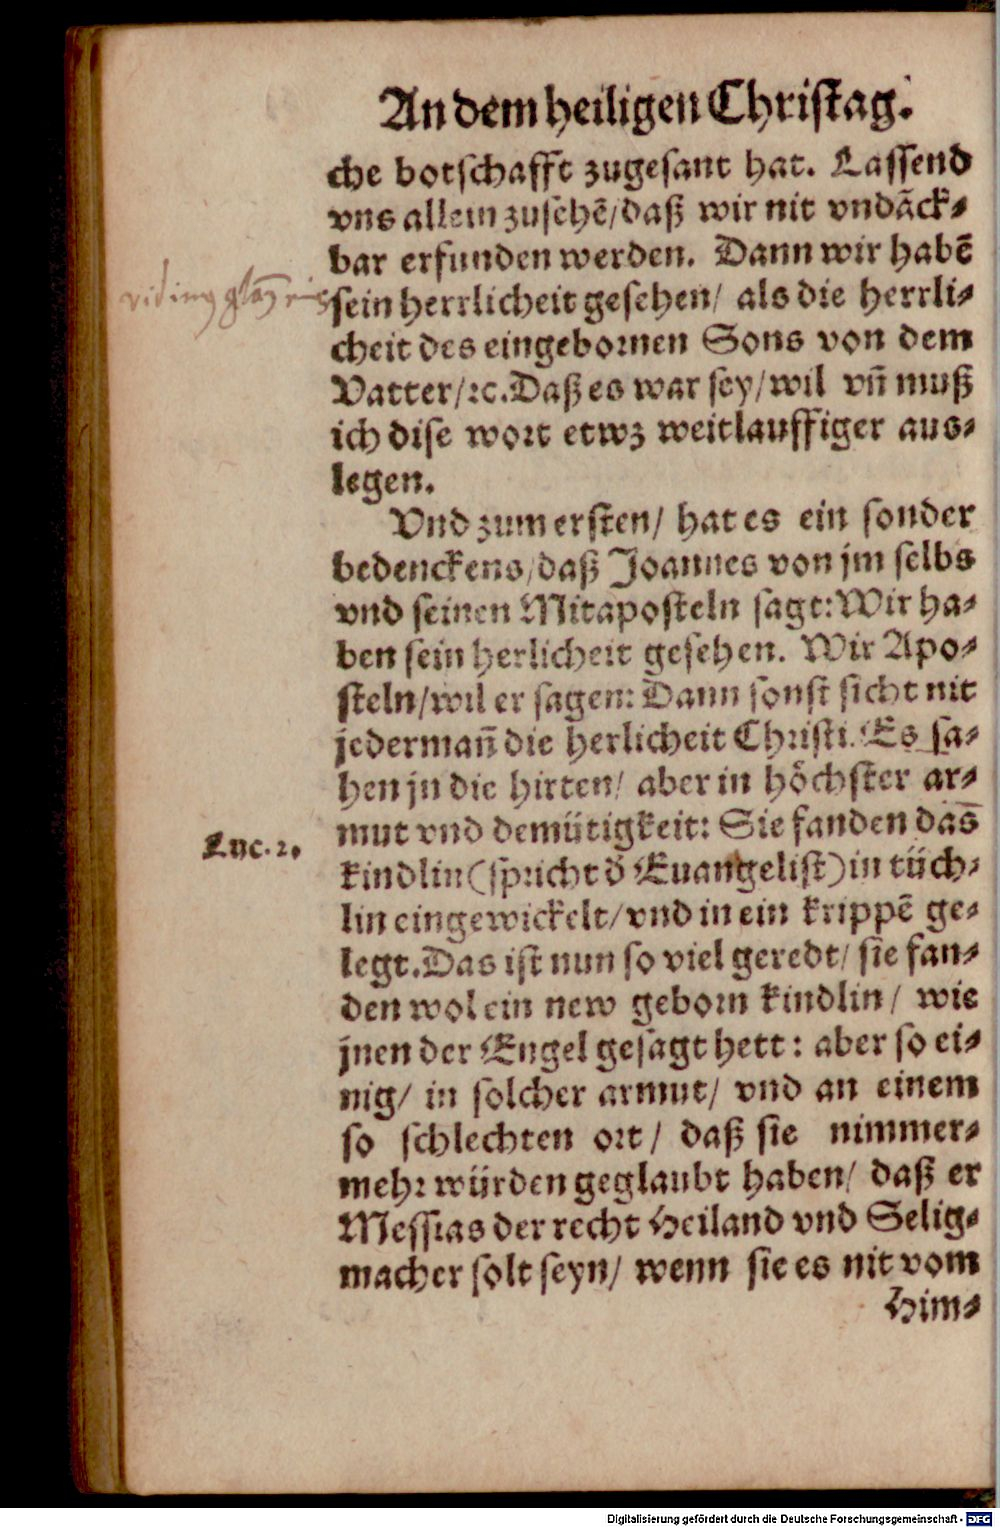 An dem heiligen Christag.
che botschafft zugesant hat. Lassend
vns allein zusehẽ/daß wir nit vndãck-
bar erfunden werden. Dann wir habẽ
sein herrlicheit gesehen/ als die herrli-
cheit des eingebornen Sons von dem
Vatter/ꝛc. Daß es war sey/wil vñ muß
ich dise wort etwz weitlauffiger aus-
legen.
Vnd zum ersten/ hat es ein sonder
bedenckens/daß Joannes von jm selbs
vnd seinen Mitaposteln sagt: Wir ha-
ben sein herlicheit gesehen. Wir Apo-
steln/wil er sagen: Dann sonst sicht nit
jedermañ die herlicheit Christi. Es sa-
hen jn die hirten/ aber in hoͤchster ar-
mut vnd demütigkeit: Sie fanden das
Luc. 2.
kindlin (spricht d̕ Euangelist) in tüch-
lin eingewickelt/vnd in ein krippẽ ge-
legt. Das ist nun so viel geredt/ sie fan-
den wol ein new geborn kindlin/ wie
jnen der Engel gesagt hett: aber so ei-
nig/ in solcher armut/ vnd an einem
so schlechten ort/ daß sie nimmer-
mehr würden geglaubt haben/ daß er
Messias der recht Heiland vnd Selig-
macher solt seyn/ wenn sie es nit vom
Him-
Digitalisierung gefördert durch die Deutsche Forschungsgemeinschaft - DFG